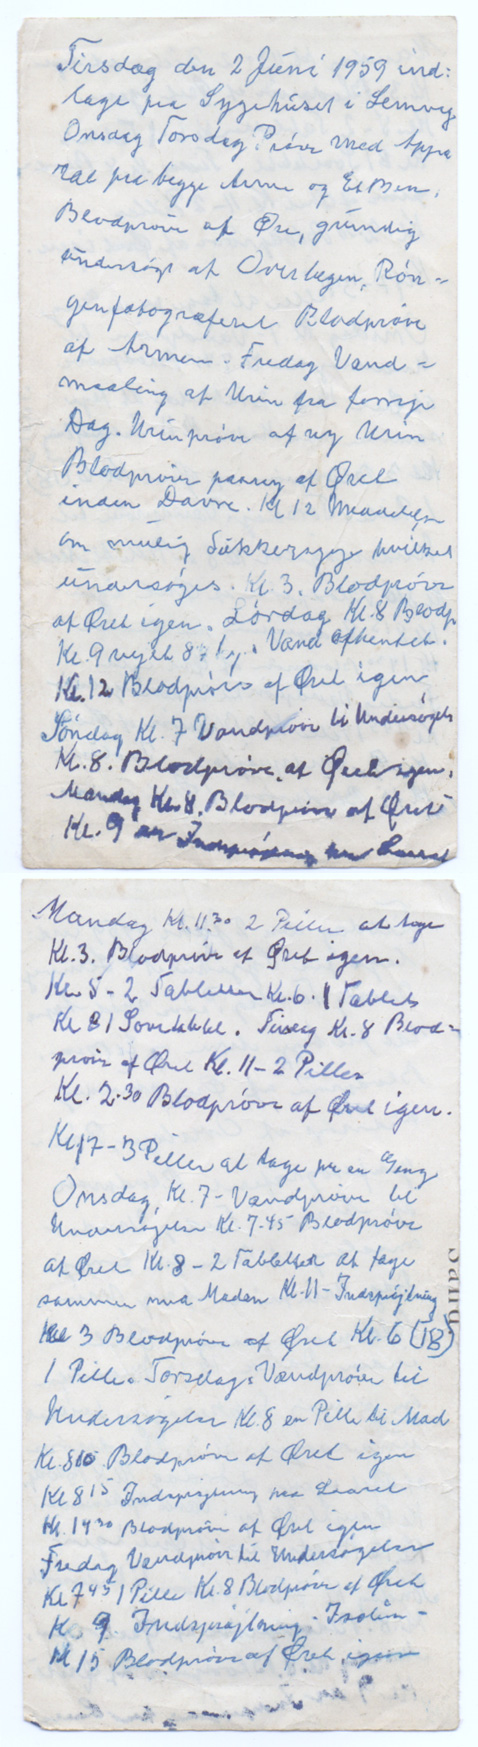 Tirsdag den 2 Juni 1959 ind:
lagt paa Sygehuset i Lemvig
Onsdag Torsdag Prøve med Appa
rat paa begge Arme og Et Ben.
Blodprøve af Øre, grundig
undersøgt af Overlægen, Røn=
genfotograferet Blodprøve
af Armen. Fredag Vand=
maaling af Urin fra forrige
Dag. Urinprøve af ny Urin
Blodprøve paany af Øret
inden Davre. Kl 12 Meddelse
om mulig Sukkersyge hvilket
undersøges. Kl. 3. Blodprøve
af Øret igen. Lørdag Kl. 8 Blodp
Kl. 9 vejet Vand afhentet.
Kl. 12 Blodprøve af Øret igen
Søndag Kl. 7 Vandprøve til Undersøgels
Kl. 8. Blodprøve af Øret igen.
Mandag Kl. 8. Blodprøve af Øret
Kl. 9 en Indsprøjtning Laaret
Mandag Kl. 11.30 2 Piller at tage
Kl. 3. Blodprøve af Øret igen.
Kl. 5 - 2 Tabletter Kl. 6. 1 Tablet
Kl 8 1 Kl. 8 Blod=
prøve af Øret Kl. 11 - 2 Piller
Kl. 2.30 Blodprøve af Øret igen.
Kl 17 - 3 Piller at tage paa en Gang
Onsdag, Kl. 7 - Vandprøve til
Undersøgelse Kl. 7.45 Blodprøve
af Øret Kl. 8 - 2 Tabletter at tage
sammen med Maden Kl. 11 - Indsprøjtning
Kl 3 Blodprøve af Øret Kl. 6 (18)
1 Pille. Torsdag. Vandprøve til
Undersøgelse Kl. 8 en Pille til Mad
Blodprøve af Øret igen
Kl. 8 15 Indsprøjtning ved Laaret
Kl. 14 30 Blodprøve af Øret igen
Fredag Vandprøve til Undersøgelse
Kl 7 45 1 Pille Kl. 8 Blodprøve af Øret
Kl. 9 Indsprøjtning -
Kl 15 Blodprøve af Øret igen